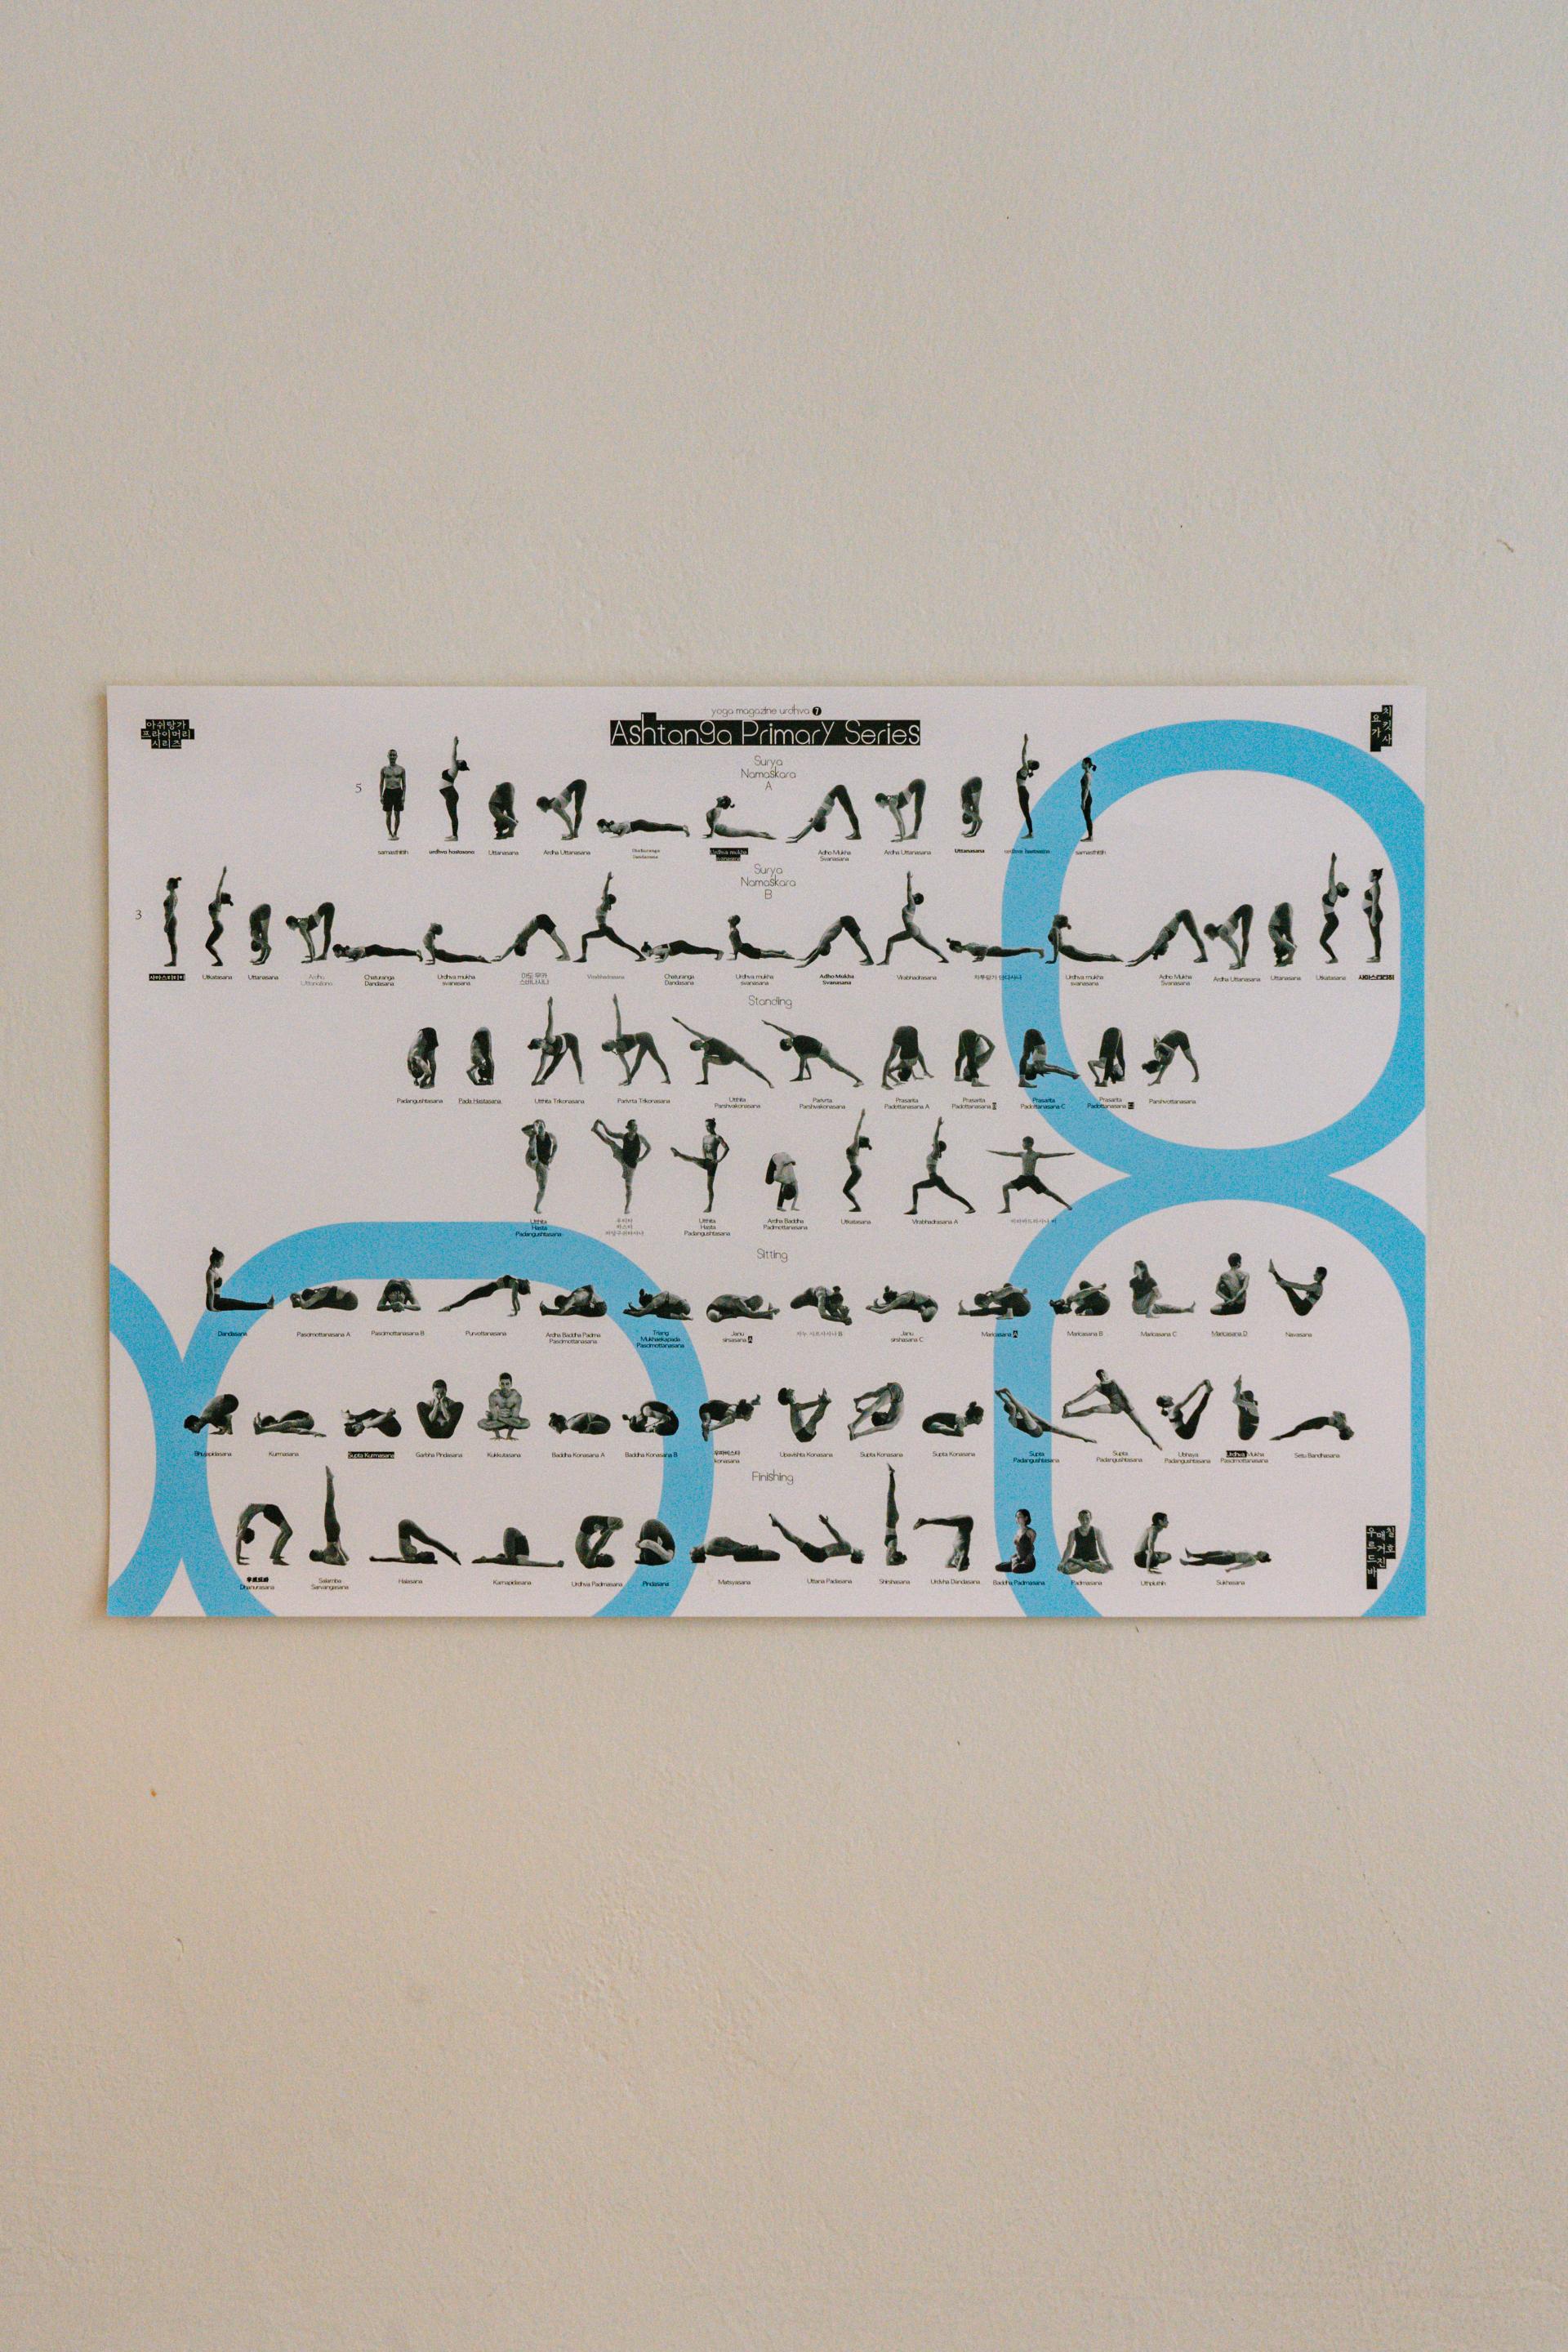 아쉬탕가
프라이머리
시리즈
yoga magazine urdhva 7
Ashtanga Primary Series
치킷사
요가
Surya
Namaskara
A
5
samasthitih
urdhva hastasana
Uttanasana
Ardha Uttanasana
Urdhva mukha
Adho Mukha
Svanasana
Ardha Uttanasana
Uttanasana
samasthitih
Surya
Namaskara
B
3
Utkatasana
Uttanasana
Ardha
Uttanasana
Chaturanga
Dandasana
Urdhva mukha
svanasana
Virabhadrasana
Chaturanga
Dandasana
Urdhva mukha
svanasana
Adho Mukha
Svanasana
Virabhadrasana
Urdhva mukha
svanasana
Adho Mukha
Svanasana
Ardha Uttanasana
Uttanasana
Utkatasana
Standing
Padangushtasana
Pada Hastasana
Utthita Trikonasana
Parivrta Trikonasana
Utthita
Parshvakonasana
Parivrta
Parshvakonasana
Prasarita
Padottanasana A
Prasarita
Padottanasana
Prasarita
Padottanasana C
Prasarita
Padottanasana
Parshvottanasana
Utthita
Hasta
Padangushtasana
Utthita
Hasta
Padangushtasana
Ardha Baddha
Padmottanasana
Utkatasana
Virabhadrasana A
Sitting
Dandasana
Pascimottanasana A
Pascimottanasana B
Purvottanasana
Ardha Baddha Padma
Pascimottanasana
Triang
Mukhaekapada
Pascimottanasana
Janu
sirsasana A
Janu
sirshasana C
Maricasana A
Maricasana B
Maricasana C
Maricasana D
Navasana
Bhujapidasana
Kurmasana
Supta Kurmasana
Garbha Pindasana
Kukkutasana
Baddha Konasana A
Baddha Konasana B
우파비스타
konasana
Upavishta Konasana
Supta Konasana
Supta Konasana
Supta
Padangushtasana
Supta
Padangushtasana
Ubhaya
Padangushtasana
Urdhva Mukha
Pascimottanasana
Setu Bandhasana
Finishing
Dhanurasana
Salamba
Sarvangasana
Halasana
Karnapidasana
Urdhva Padmasana
Pindasana
Matsyasana
Uttana Padasana
Shirshasana
Urdvha Dandasana
Baddha Padmasana
Padmasana
Uthpluthih
Sukhasana
우르드바
매거진
칠호